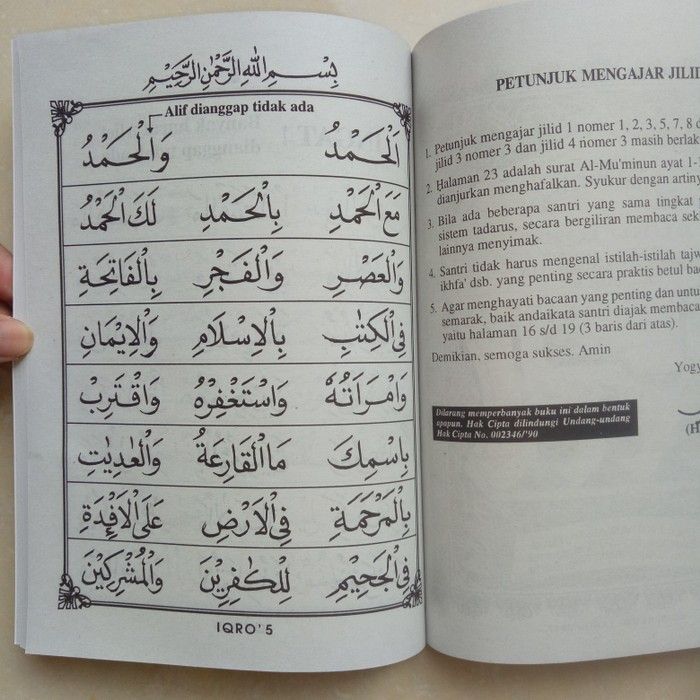 بِسْمِ اللهِ الرَّحْمٰنِ الرَّحِيْمِ
Alif dianggap tidak ada
اَلْحَمْدُ وَالْحَمْدُ
مَعَ الْحَمْدِ بِالْحَمْدِ لَكَ الْحَمْدُ
وَالْعَصْرِ وَالْفَجْرِ بِالْفَاتِحَةِ
فِى الْكِتٰبِ بِالْاِسْلَامِ وَالْاِيْمَانِ
وَامْرَاَتُهُ وَاسْتَغْفِرْهُ وَاقْتَرِبْ
بِاسْمِكَ مَاالْقَارِعَةُ وَالْعٰدِيٰتِ
بِالْمَرْحَمَةِ فِى الْاَرْضِ عَلَى الْاَفْئِدَةِ
فِى الْجَحِيْمِ لِلْكٰفِرِيْنَ وَالْمُشْرِكِيْنَ
IQRO' 5
PETUNJUK MENGAJAR JILID
1. Petunjuk mengajar jilid 1 nomer 1, 2, 3, 5, 7, 8
jilid 3 nomer 3 dan jilid 4 nomer 3 masih berlak
2. Halaman 23 adalah surat Al-Mu'minun ayat 1-
dianjurkan menghafalkan. Syukur dengan artiny
3. Bila ada beberapa santri yang sama tingkat
sistem tadarus, secara bergiliran membaca sek
lainnya menyimak.
4. Santri tidak harus mengenal istilah-istilah tajw
ikhfa' dsb. yang penting secara praktis betul ba
5. Agar menghayati bacaan yang penting dan untu
semarak, baik andaikata santri diajak membaca
yaitu halaman 16 s/d 19 (3 baris dari atas).
Demikian, semoga sukses. Amin
Yogy
Dilarang memperbanyak buku ini dalam bentuk
apapun. Hak Cipta dilindungi Undang-undang
Hak Cipta No. 002346/'90
(H